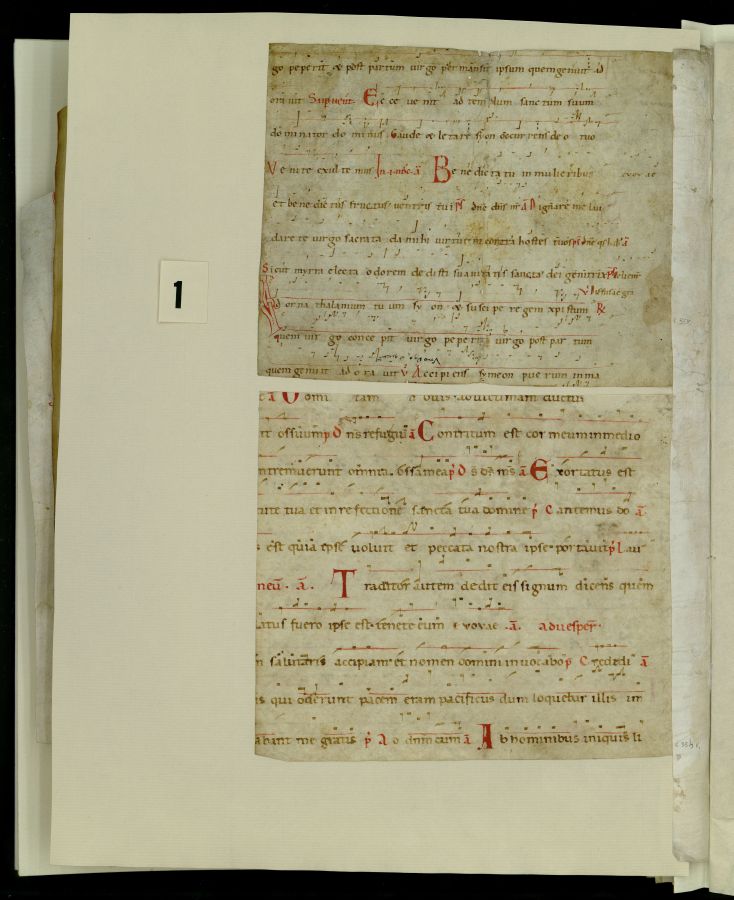 1
go peperit & post partum virgo permansit ipsum quem genuit ad
oravit Ecce venit ad templum sanctum suum
dominator dominus Gaude & letare syon occurrens deo tuo
Venite exultemus Benedicta tu in mulieribus
et benedictus fructus ventris tui Dignare me lau
dare te virgo sacrata da mihi virtutem contra hostes tuos
Sicut myrra electa odorem dedisti suavitatis sancta dei genitrix
Adorna thalamum tuum syon & suscipe regem xpistum
quem virgo concepit virgo peperit virgo post partum
quem genuit adoravit V Accipiens symeon puerum in ma
ovis ad victimam ductus
ossuum p Dns refugiu a Contritum est cor meum in medio
ntremuerunt omnia ossa mea p a Exortatus est
tute tua et in refectione sancta tua domine p Cantemus do a
s est quia ipse voluit et peccata nostra ipse portavit p Lau
a. Traditor autem dedit eis signum dicens quem
latus fuero ipse est tenete eum evovae .a. ad vesper
salutaris accipiam et nomen domini invocabo p Credidi a
is qui oderunt pacem eram pacificus dum loquebar illis im
abant me gratis p Ad dnm cum a Ab hominibus iniquis li